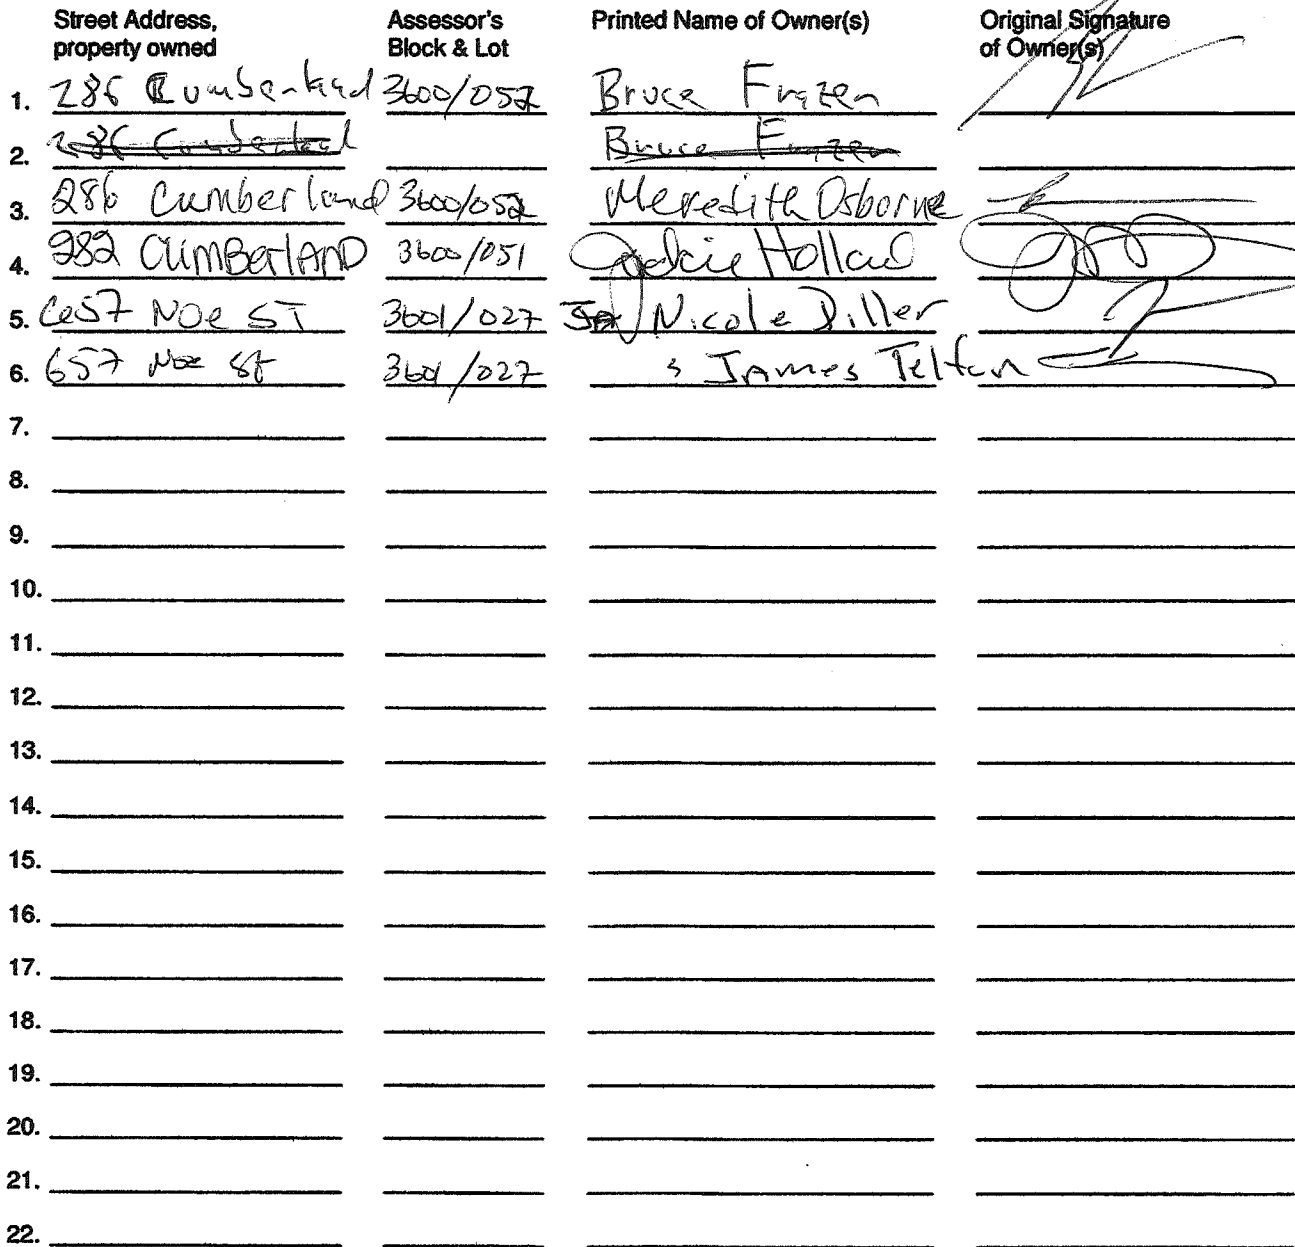 Street Address, Assessor's Printed Name of Owner(s) Original Signature
property owned Block & Lot of Owner(s)
1. 286 Cumberland 3600/052 Bruce Frazen
2. 286 Cumberland Bruce Frazen
3. 286 Cumberland 3600/052 Meredith Osborne
4. 282 CUMBERLAND 3600/051 Jackie Holland
5. 657 NOE ST 3601/027 Nicole Diller
6. 657 Noe St 3601/027 James
7.
8.
9.
10.
11.
12.
13.
14.
15.
16.
17.
18.
19.
20.
21.
22.